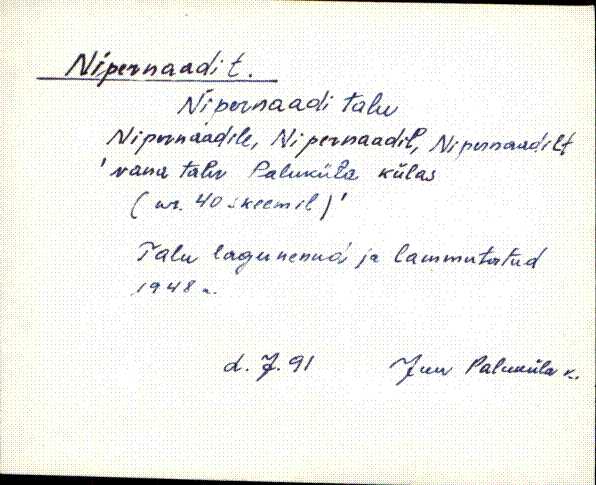 Nipernaadi t.
Nipernaadi talu
Nipernaadile, Nipernaadil, Nipernaadilt
'vana talu Paluküla külas
(nr. 40 skeemil)'
Talu lagunenud ja lammutatud
1948 a.
d. J. 91 Juu Paluküla k.